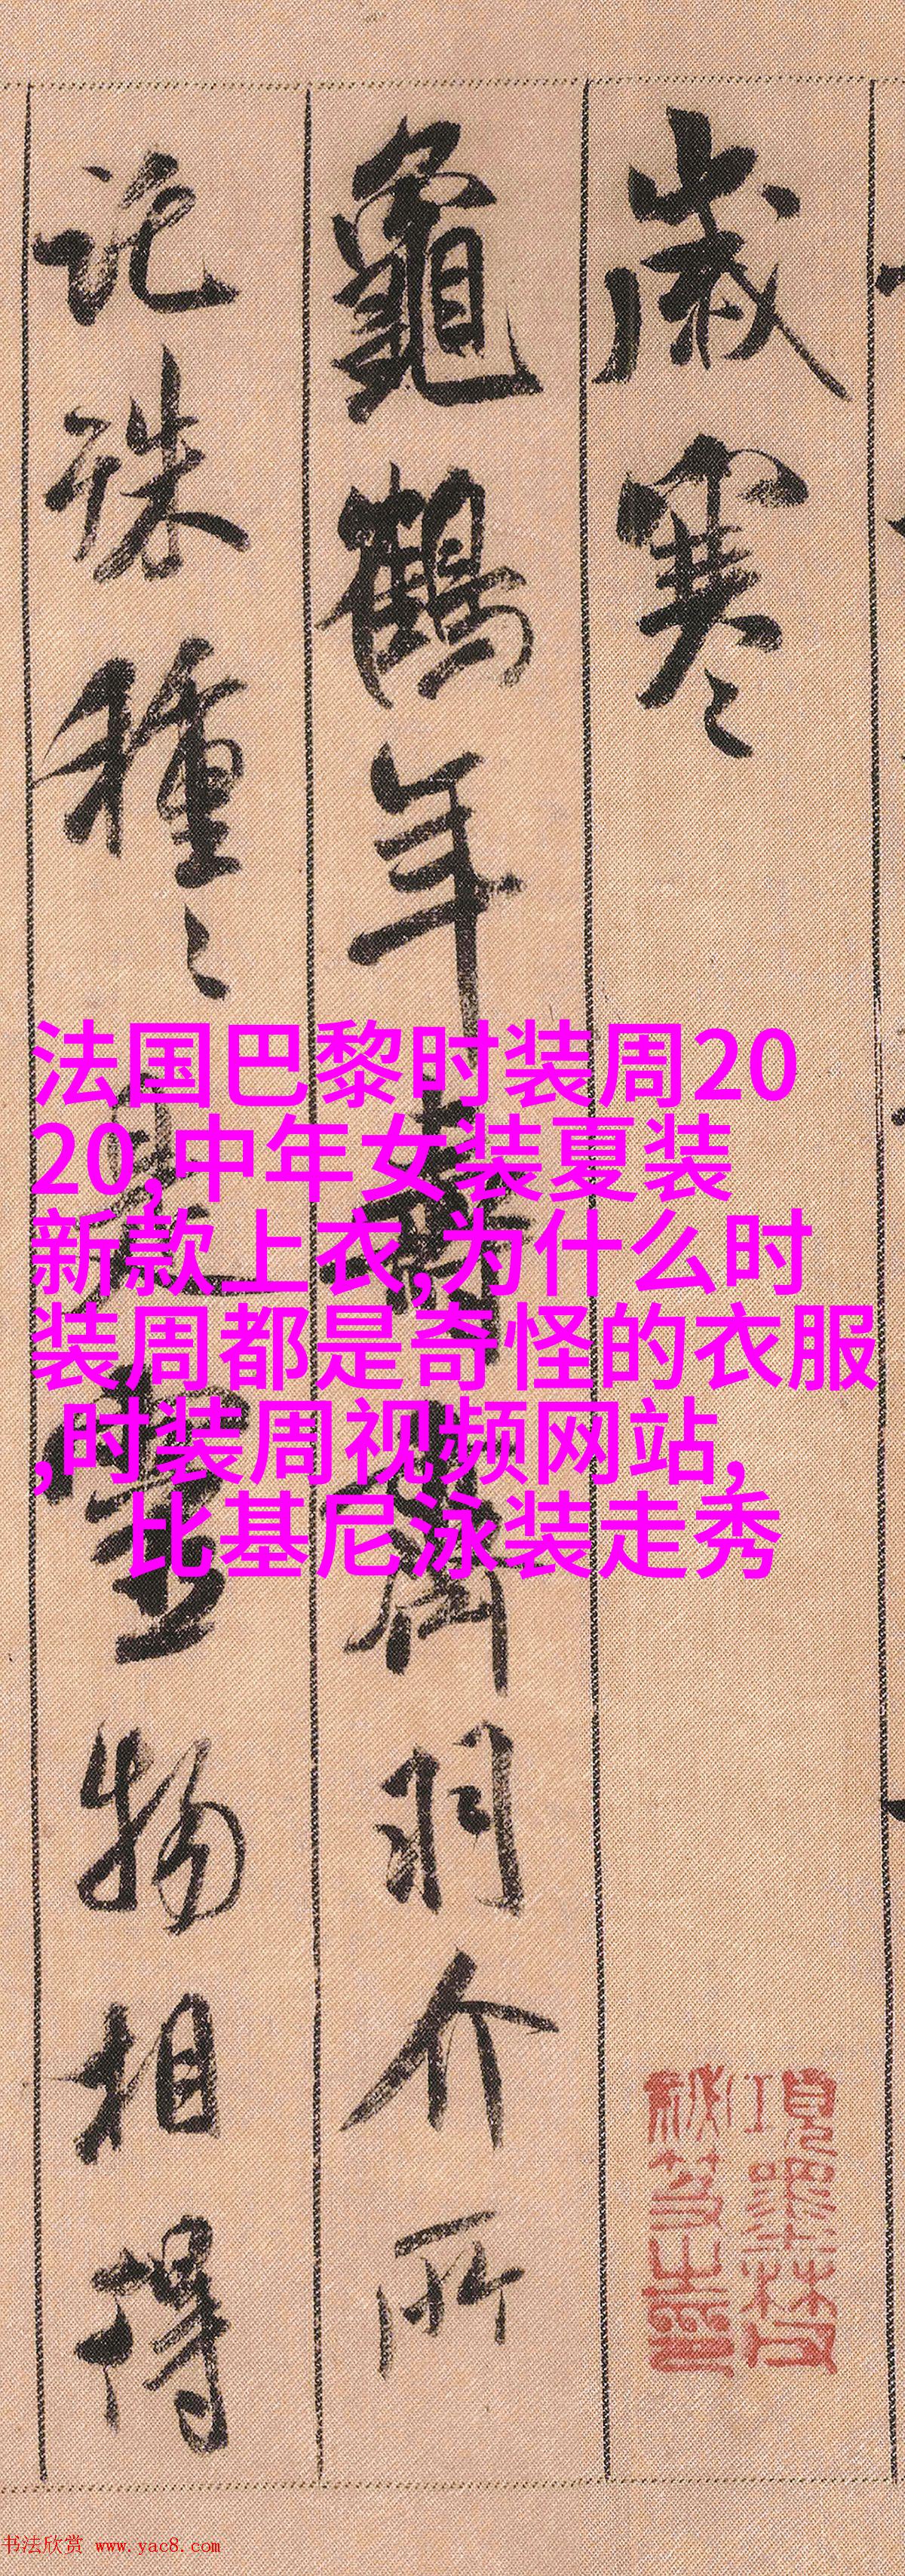 歲寒
龜鶴年壽齊羽介所
託殊種々是靈物相得
項墨林父
祕笈之印
法国巴黎时装周20
20,中年女装夏装
新款上衣,为什么时
装周都是奇怪的衣服
,时装周视频网站,
比基尼泳装走秀
书法欣赏 www.yac8.com